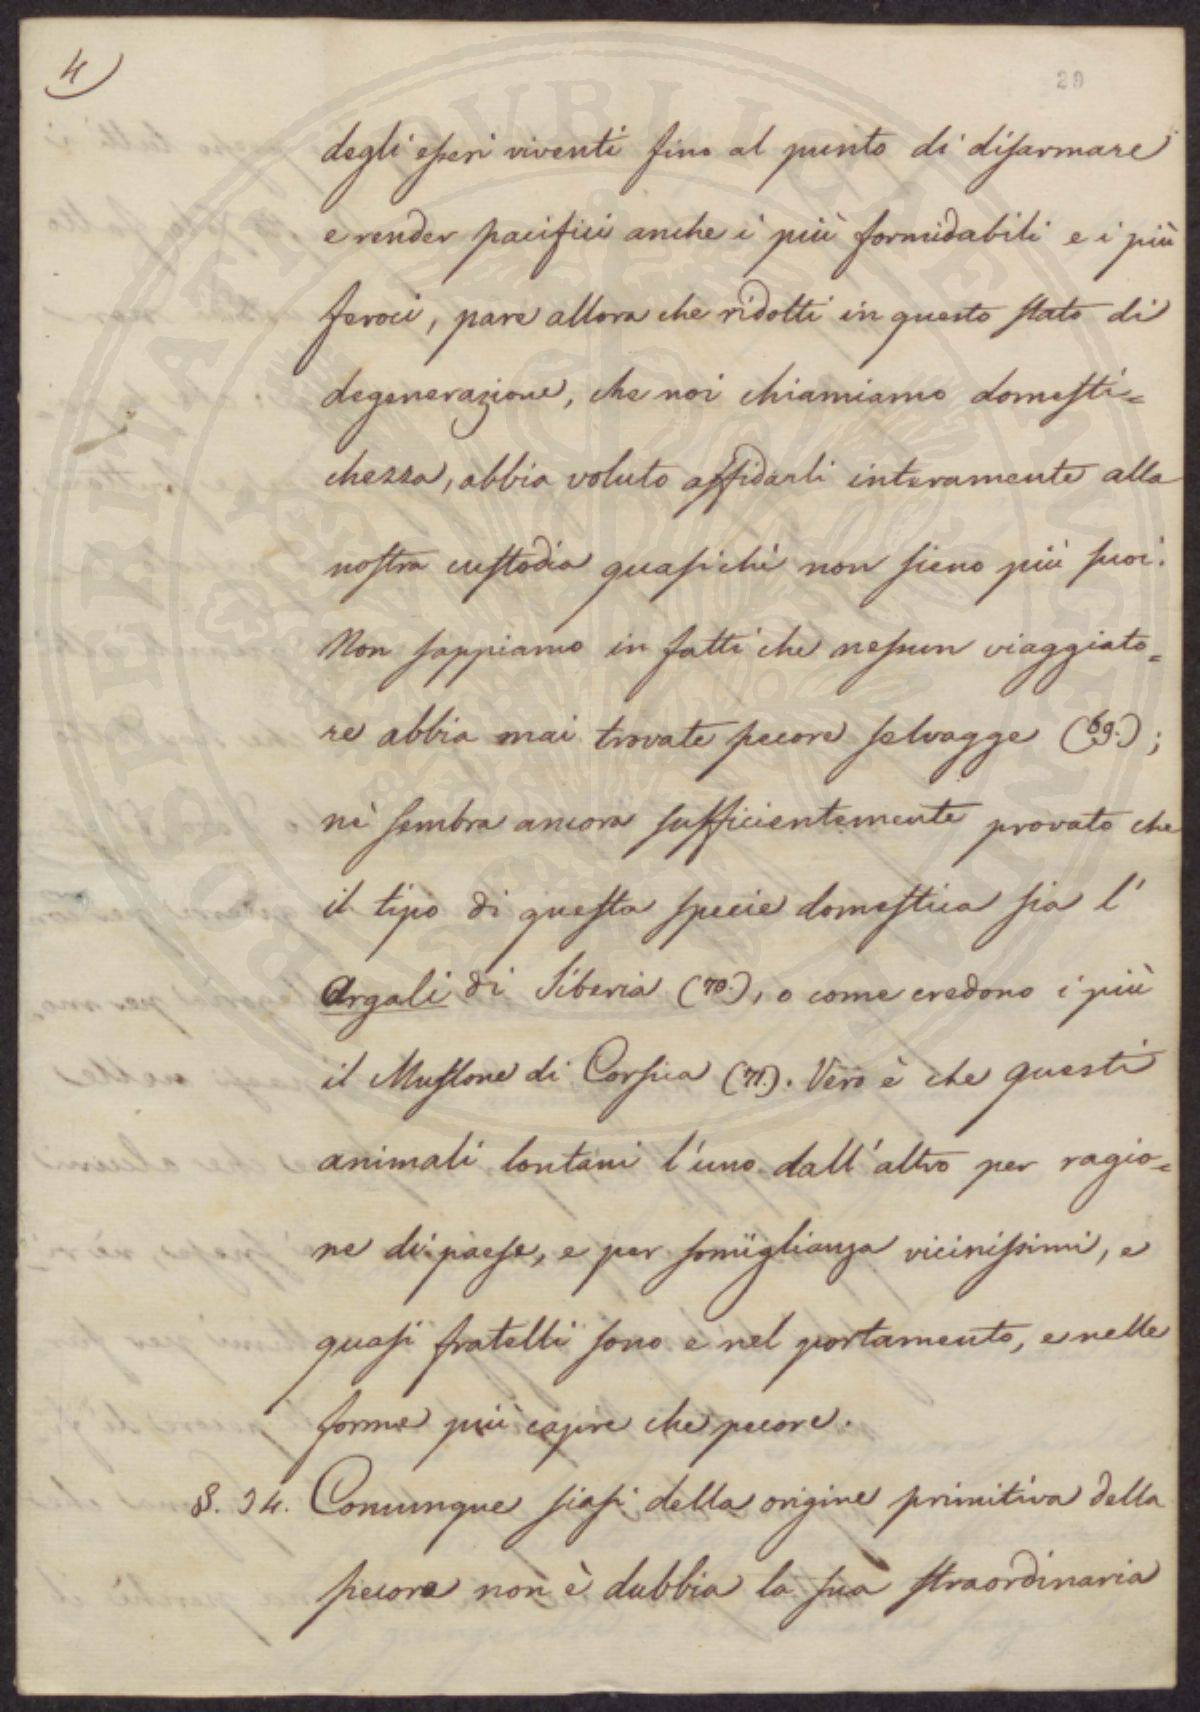 4)
29
degli esseri viventi fino al punto di disarmare
e render pacifici anche i più formidabili e i più
feroci, pare allora che ridotti in questo stato di
degenerazione, che noi chiamiamo domesti=
chezza, abbia voluto affidarli interamente alla
nostra custodia quasichè non sieno più suoi.
Non sappiamo in fatti che nessun viaggiato=
re abbia mai trovate pecore selvagge (69.);
nè sembra ancora sufficientemente provato che
il tipo di questa specie domestica sia l'
Argali di Siberia (70.), o come credono i più
il Muflone di Corsica (71.). Vero è che questi
animali lontani l'uno dall'altro per ragio=
ne di paese, e per somiglianza vicinissimi, e
quasi fratelli sono e nel portamento, e nelle
forme più capre che pecore.
§. 34. Comunque siasi della origine primitiva della
pecora non è dubbia la sua straordinaria